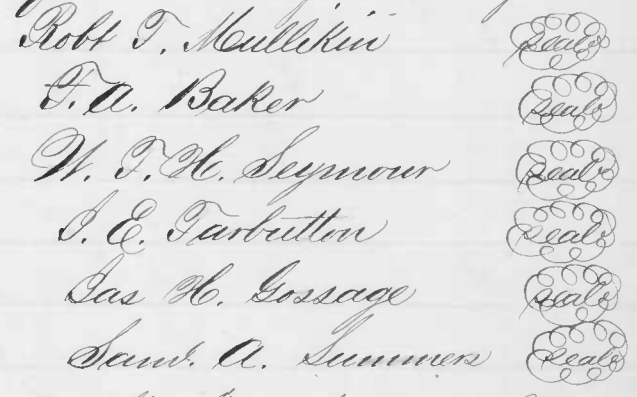 Robt T. Mullikin seal
F. A. Baker seal
W. T. H. Seymour seal
I. E. Tarbutton seal
Jas H. Gossage seal
Saml. A. Summers seal